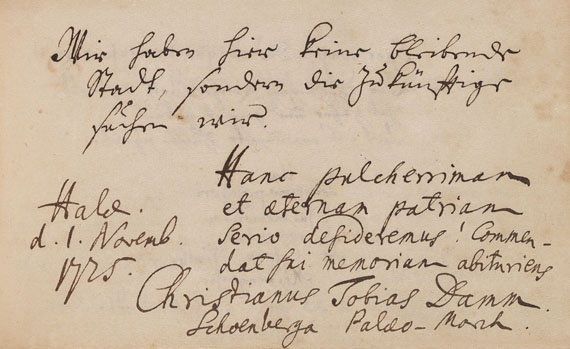 Wir haben hier keine bleibende
Stadt, sondern die zukünfftige
suchen wir.
Hanc pulcherrimam
et æternam patriam
serio desideremus! Commen-
dat sui memoriam abituriens
Christianus Tobias Damm.
Schoenberga Palæo-March.
Halæ.
d. 1. Novemb.
1725.